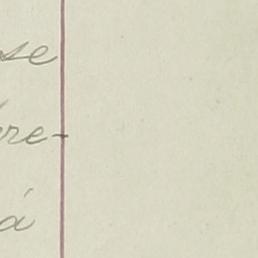 se
re-
á